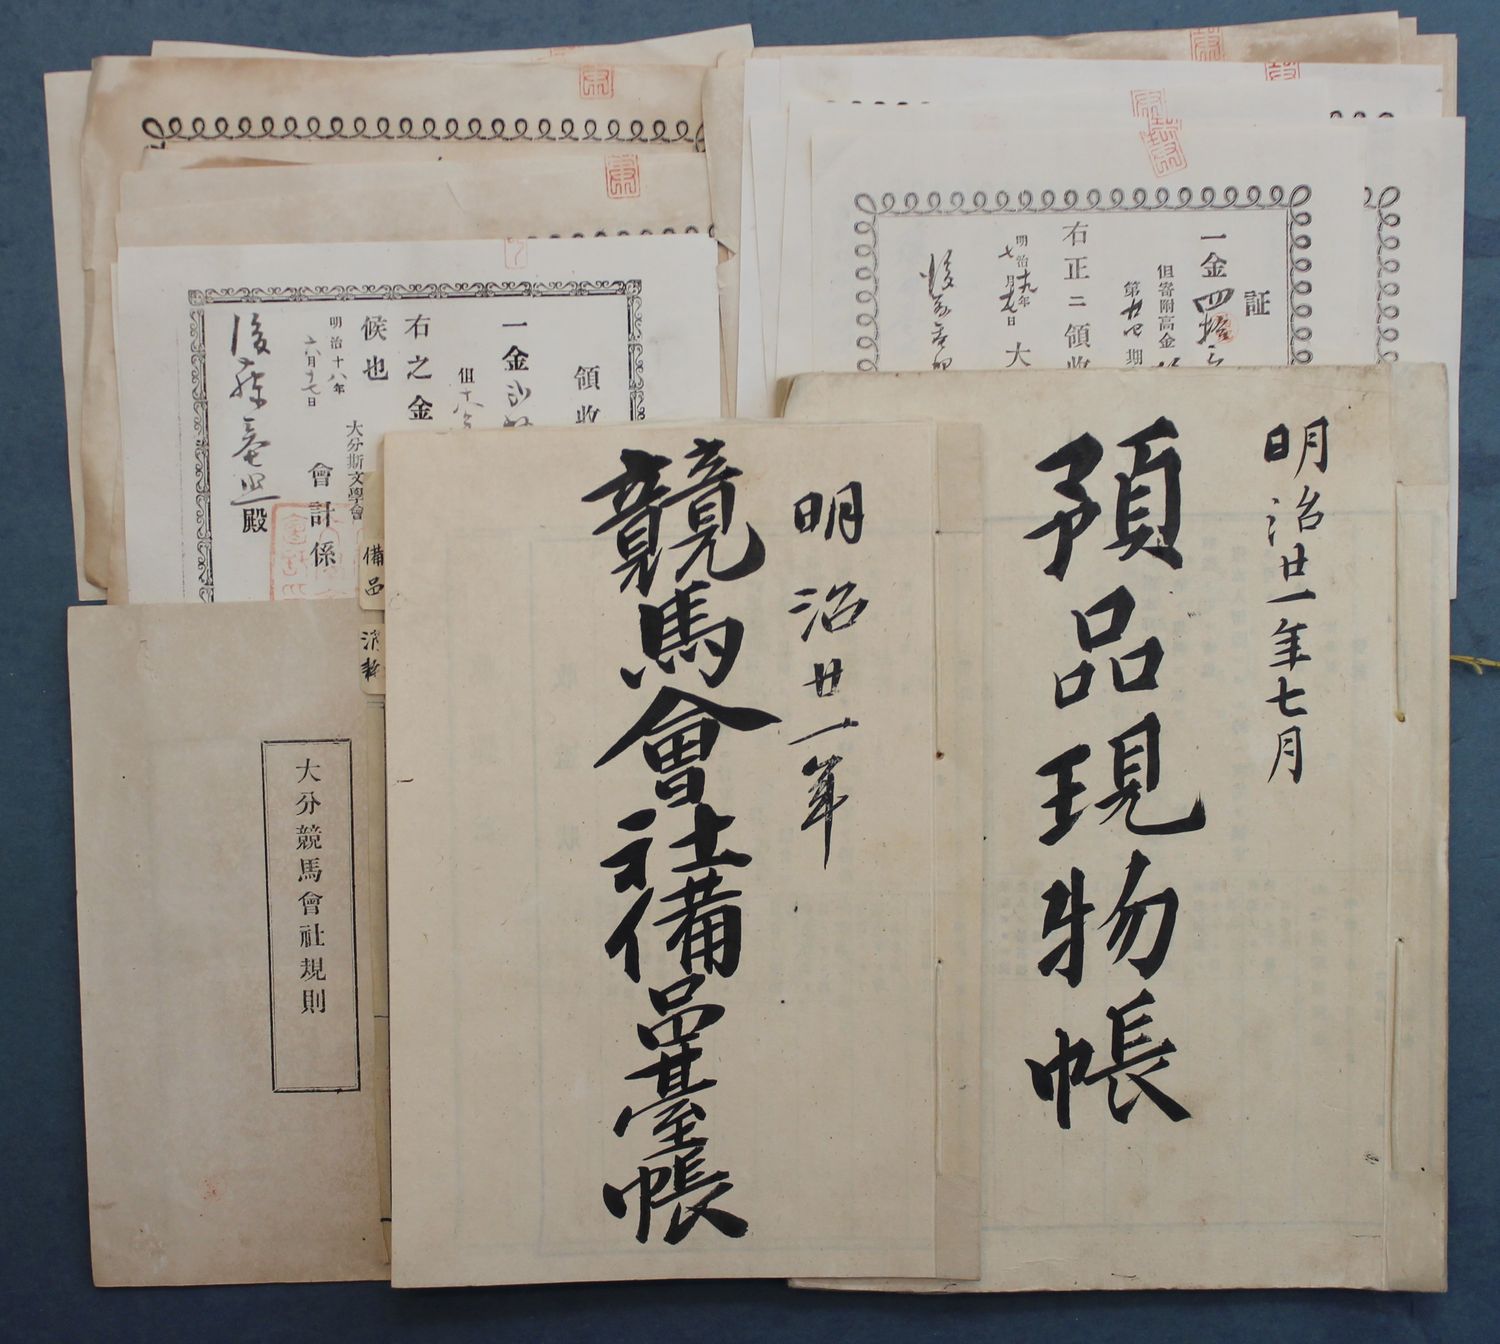 明治廿一年七月
預品現物帳
明治廿一年
競馬會社備品臺帳
大分競馬會社規則
備品
証
一金四拾
但寄附高金
第廿四期
右正ニ領收
明治十九年
七月 日
大
領收
一金
但十八
右之金
候也
明治十八年
六月十七日
大分斯文學會
會計係
後藤 殿